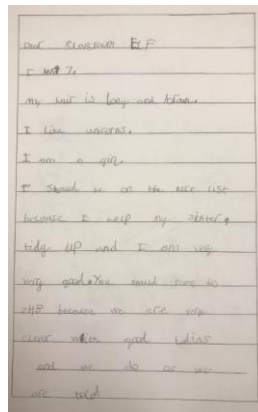 Dear ELF
I 7.
My hair is long and brown.
I like unicorns.
I am a girl.
I should be on the nice list
because I help my sister
tidy up and I am very
very good. You should come to
because we are very
clever good
and we do as we
are told